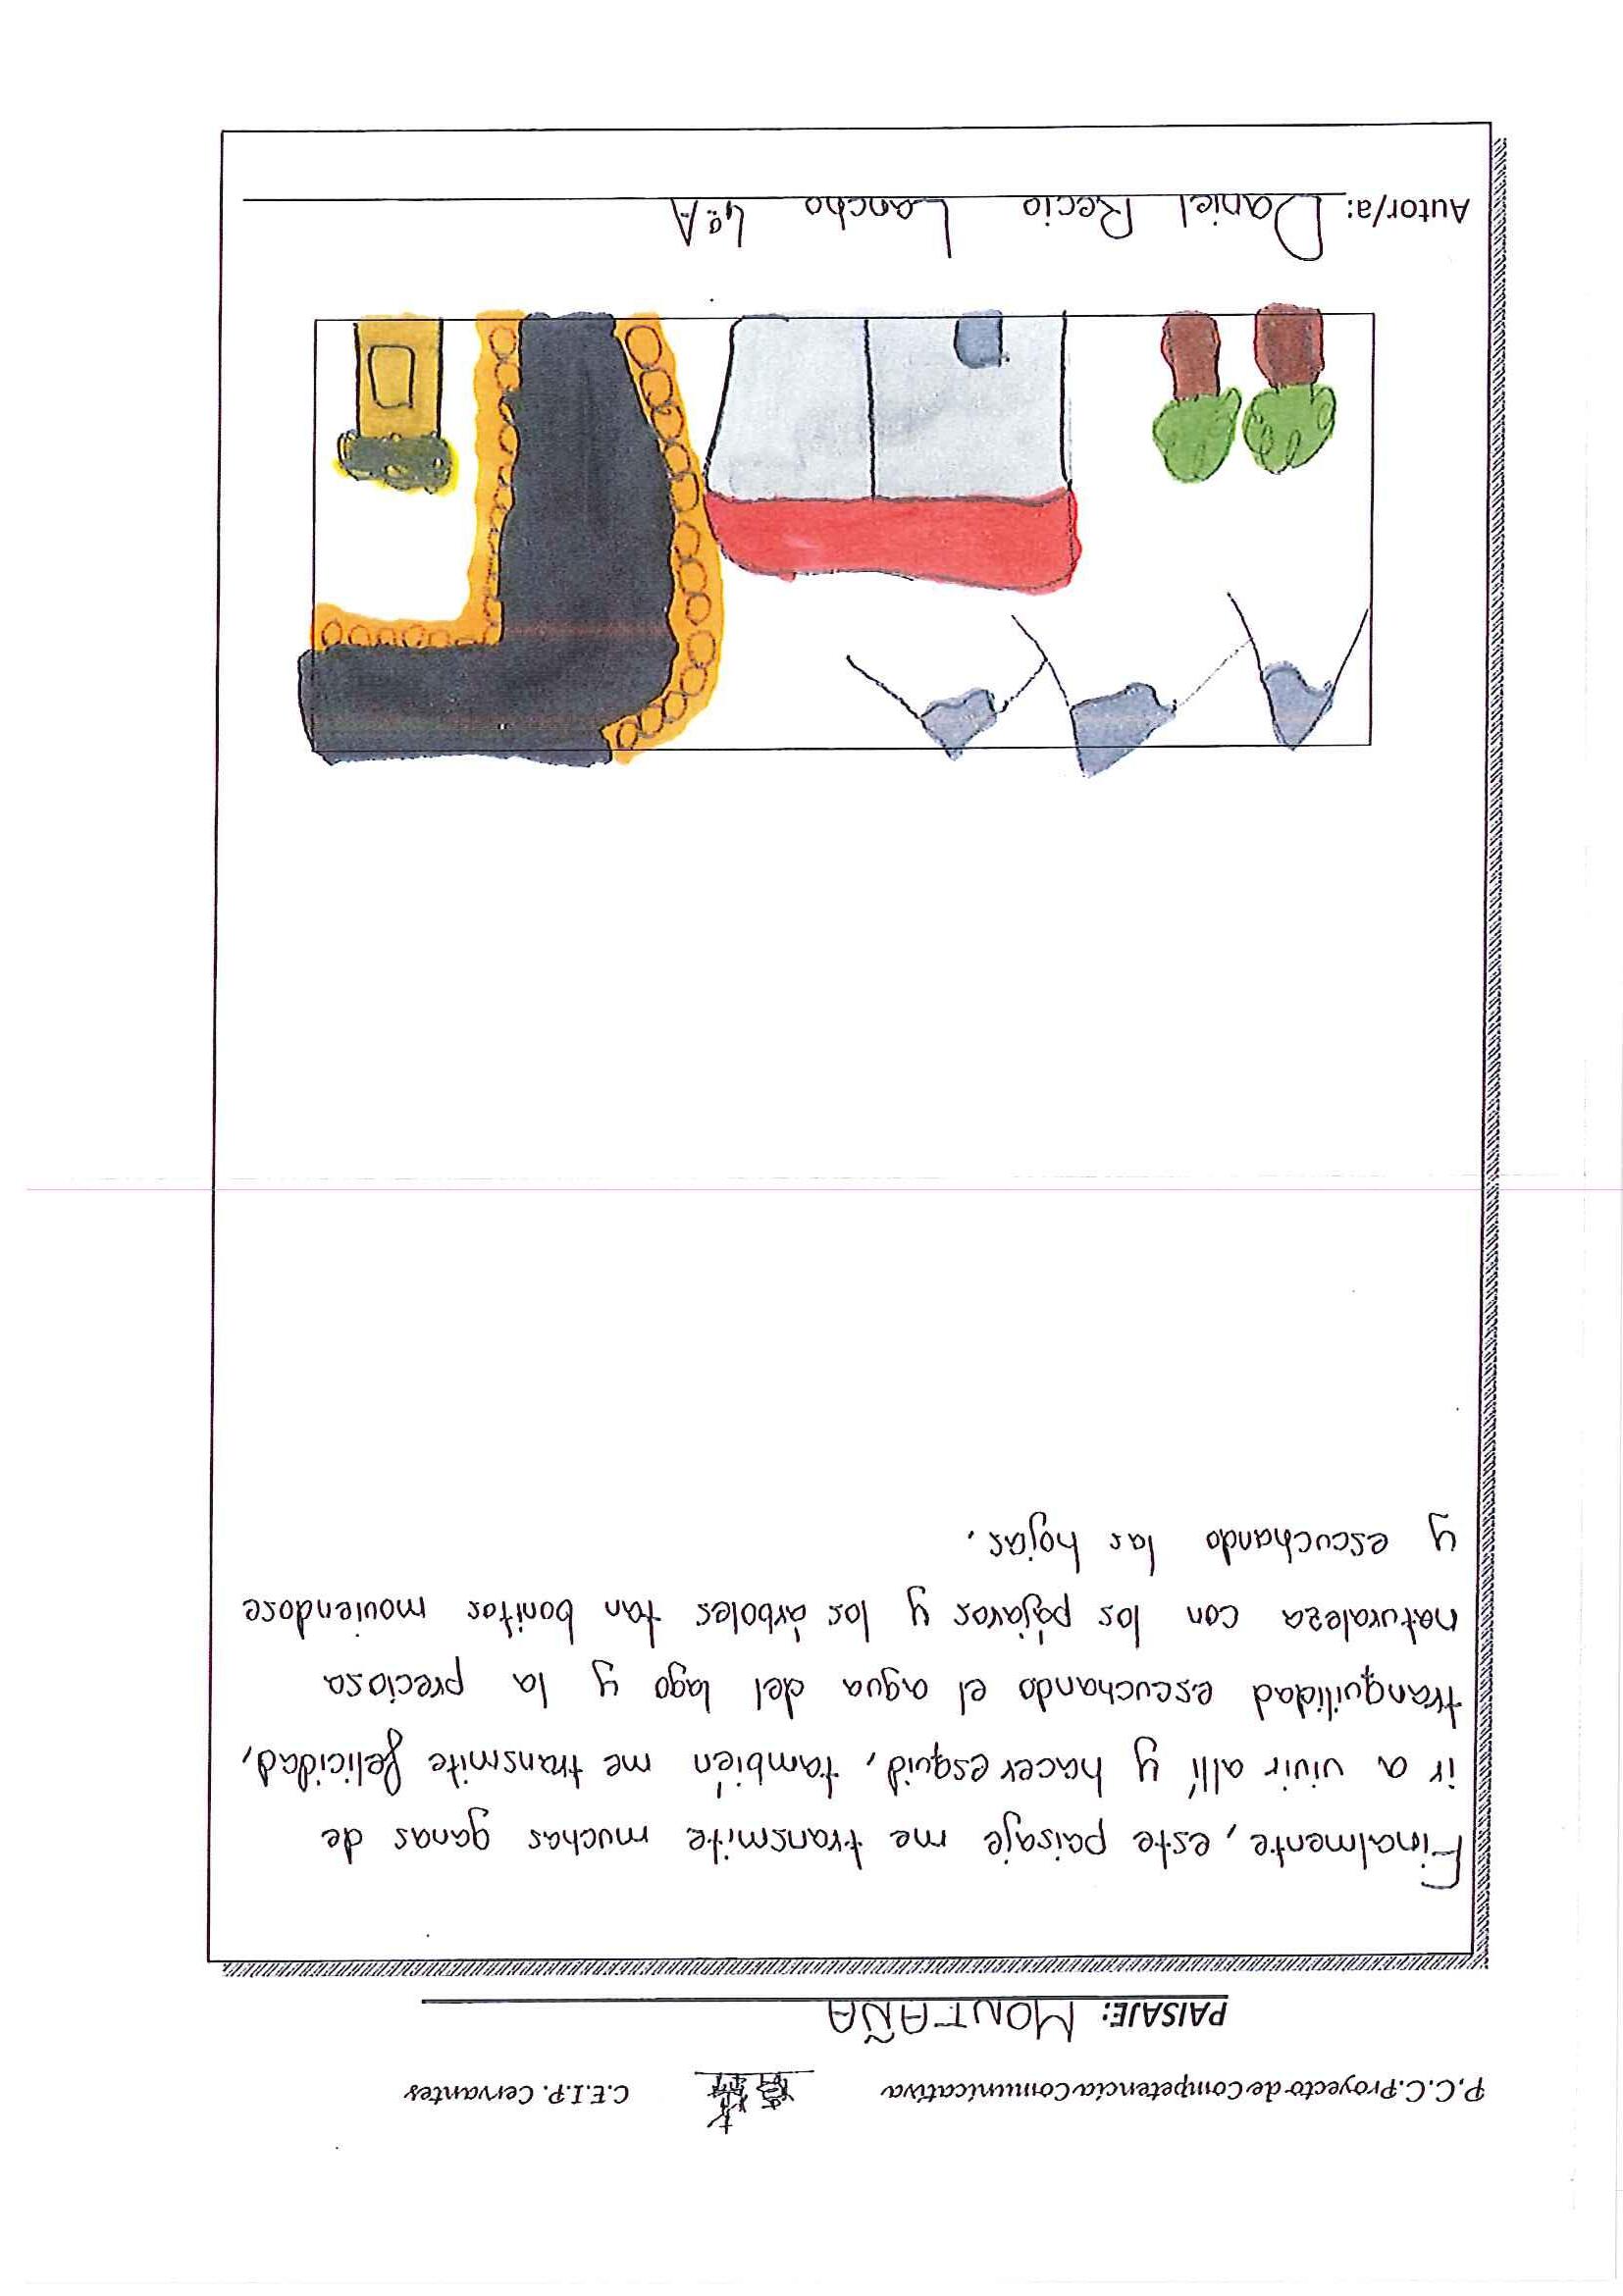 P.C.C. Proyecto de Competencia Comunicativa C.E.I.P. Cervantes
PAISAJE: MONTAÑA
Finalmente, este paisaje me transmite muchas ganas de
ir a vivir allí y hacer esquid, también me transmite felicidad,
tranquilidad escuchando el agua del lago y la preciosa
naturaleza con los pájaros y los árboles tan bonitos moviendose
y escuchando las hojas.
Autor/a: Daniel Recio Lancho 4º A